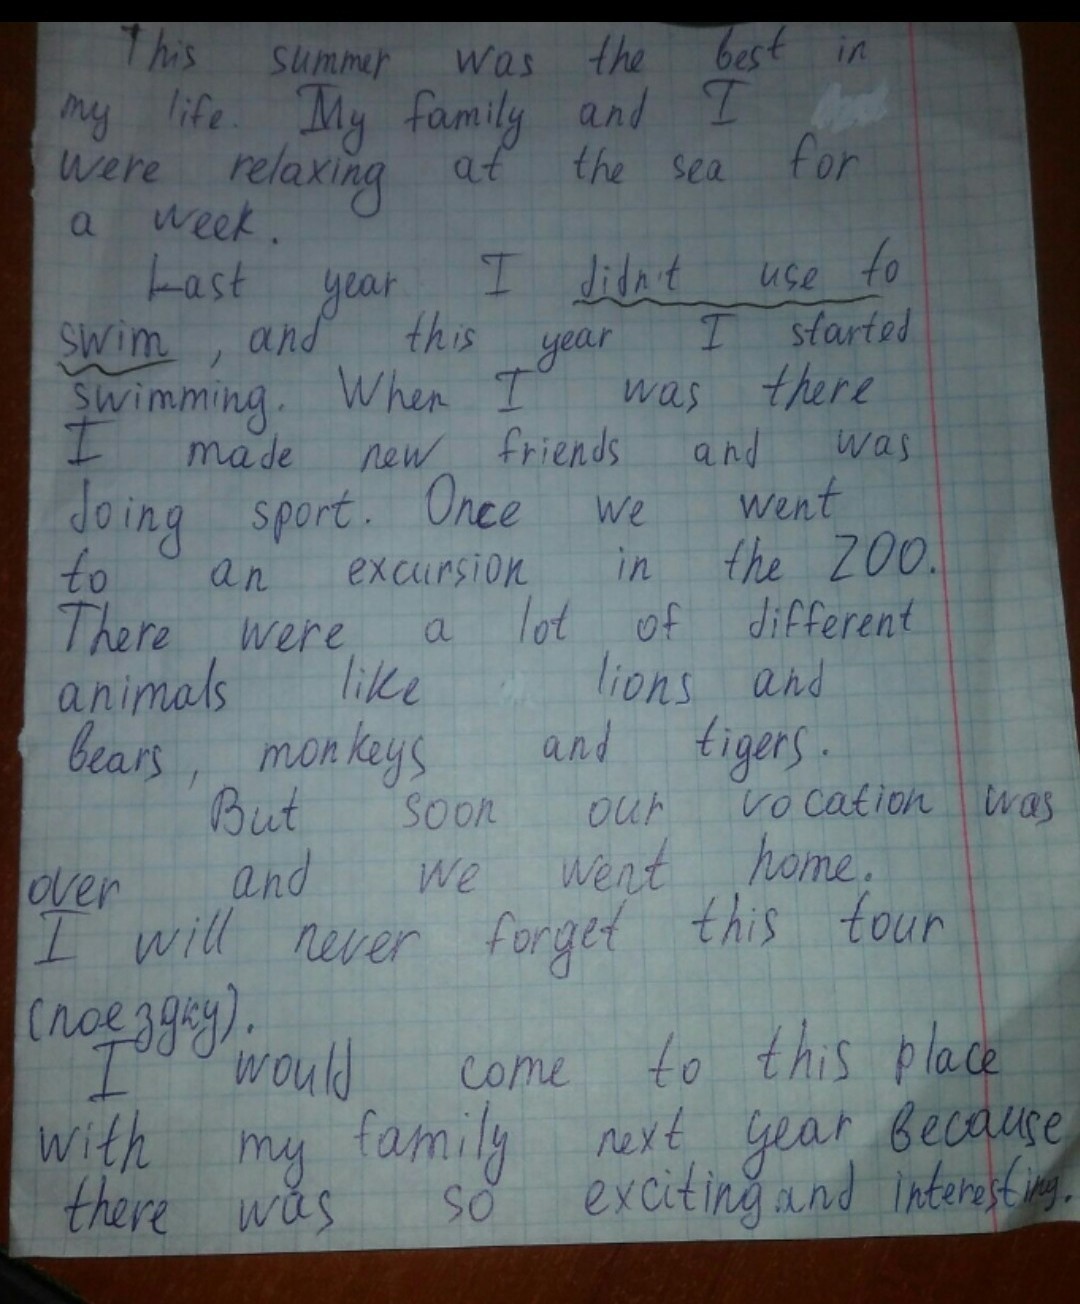 This summer was the best in
my life. My family and I
were relaxing at the sea for
a week.
Last year I didn't use to
swim, and this year I started
swimming. When I was there
I made new friends and was
doing sport. Once we went
to an excursion in the ZOO.
There were a lot of different
animals like lions and
bears, monkeys and tigers.
But soon our vocation was
over and we went home.
I will never forget this tour
(поездку).
I would come to this place
with my family next year because
there was so exciting and interesting.